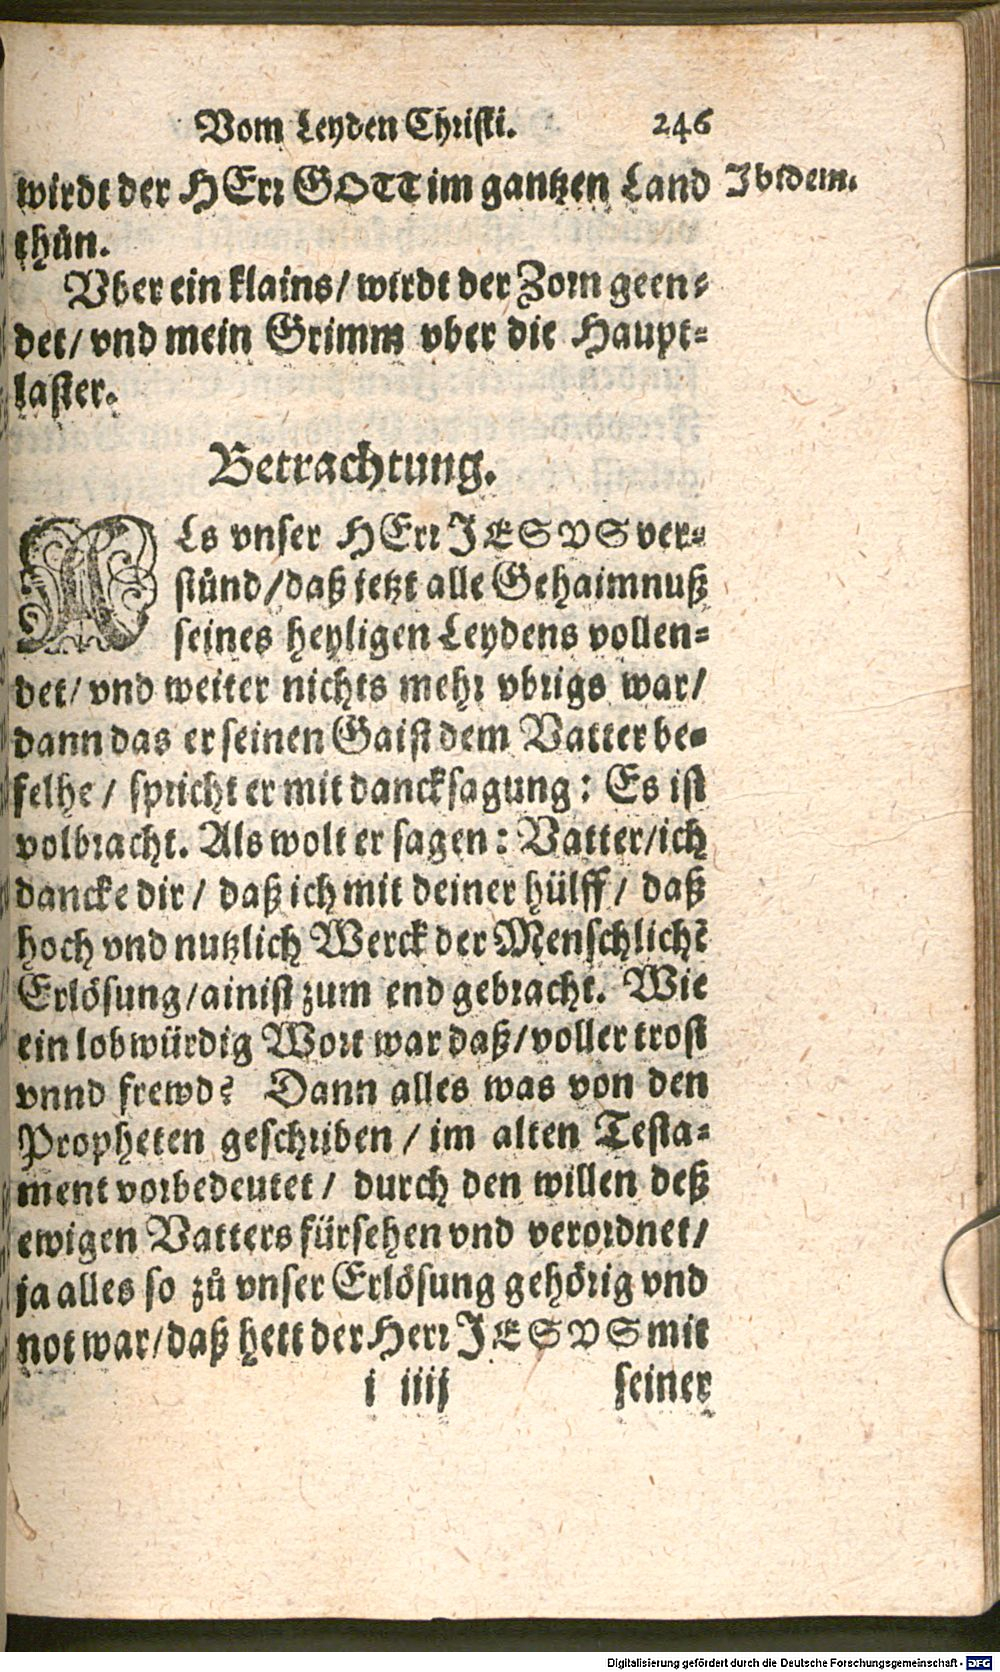 Vom Leyden Christi. 246
wirdt der HErr GOTT im gantzen Land Ibidem.
thůn.
Vber ein klains/ wirdt der Zorn geen-
det/ vnd mein Grimm vber die Haupt-
laster.
Betrachtung.
ALs vnser HErr JESVS ver-
stůnd/daß jetzt alle Gehaimnuß
seines heyligen Leydens vollen-
det/ vnd weiter nichts mehr vbrigs war/
dann das er seinen Gaist dem Vatter be-
felhe/ spricht er mit dancksagung: Es ist
volbracht. Als wolt er sagen: Vatter/ich
dancke dir/ daß ich mit deiner hülff/ daß
hoch vnd nutzlich Werck der Menschlichẽ
Erlösung/ainist zum end gebracht. Wie
ein lobwürdig Wort war daß/voller trost
vnnd frewd? Dann alles was von den
Propheten geschriben/ im alten Testa-
ment vorbedeutet/ durch den willen deß
ewigen Vatters fürsehen vnd verordnet/
ja alles so zů vnser Erlösung gehörig vnd
not war/daß hett der Herr JESVS mit
i iiij seiner
Digitalisierung gefördert durch die Deutsche Forschungsgemeinschaft - DFG